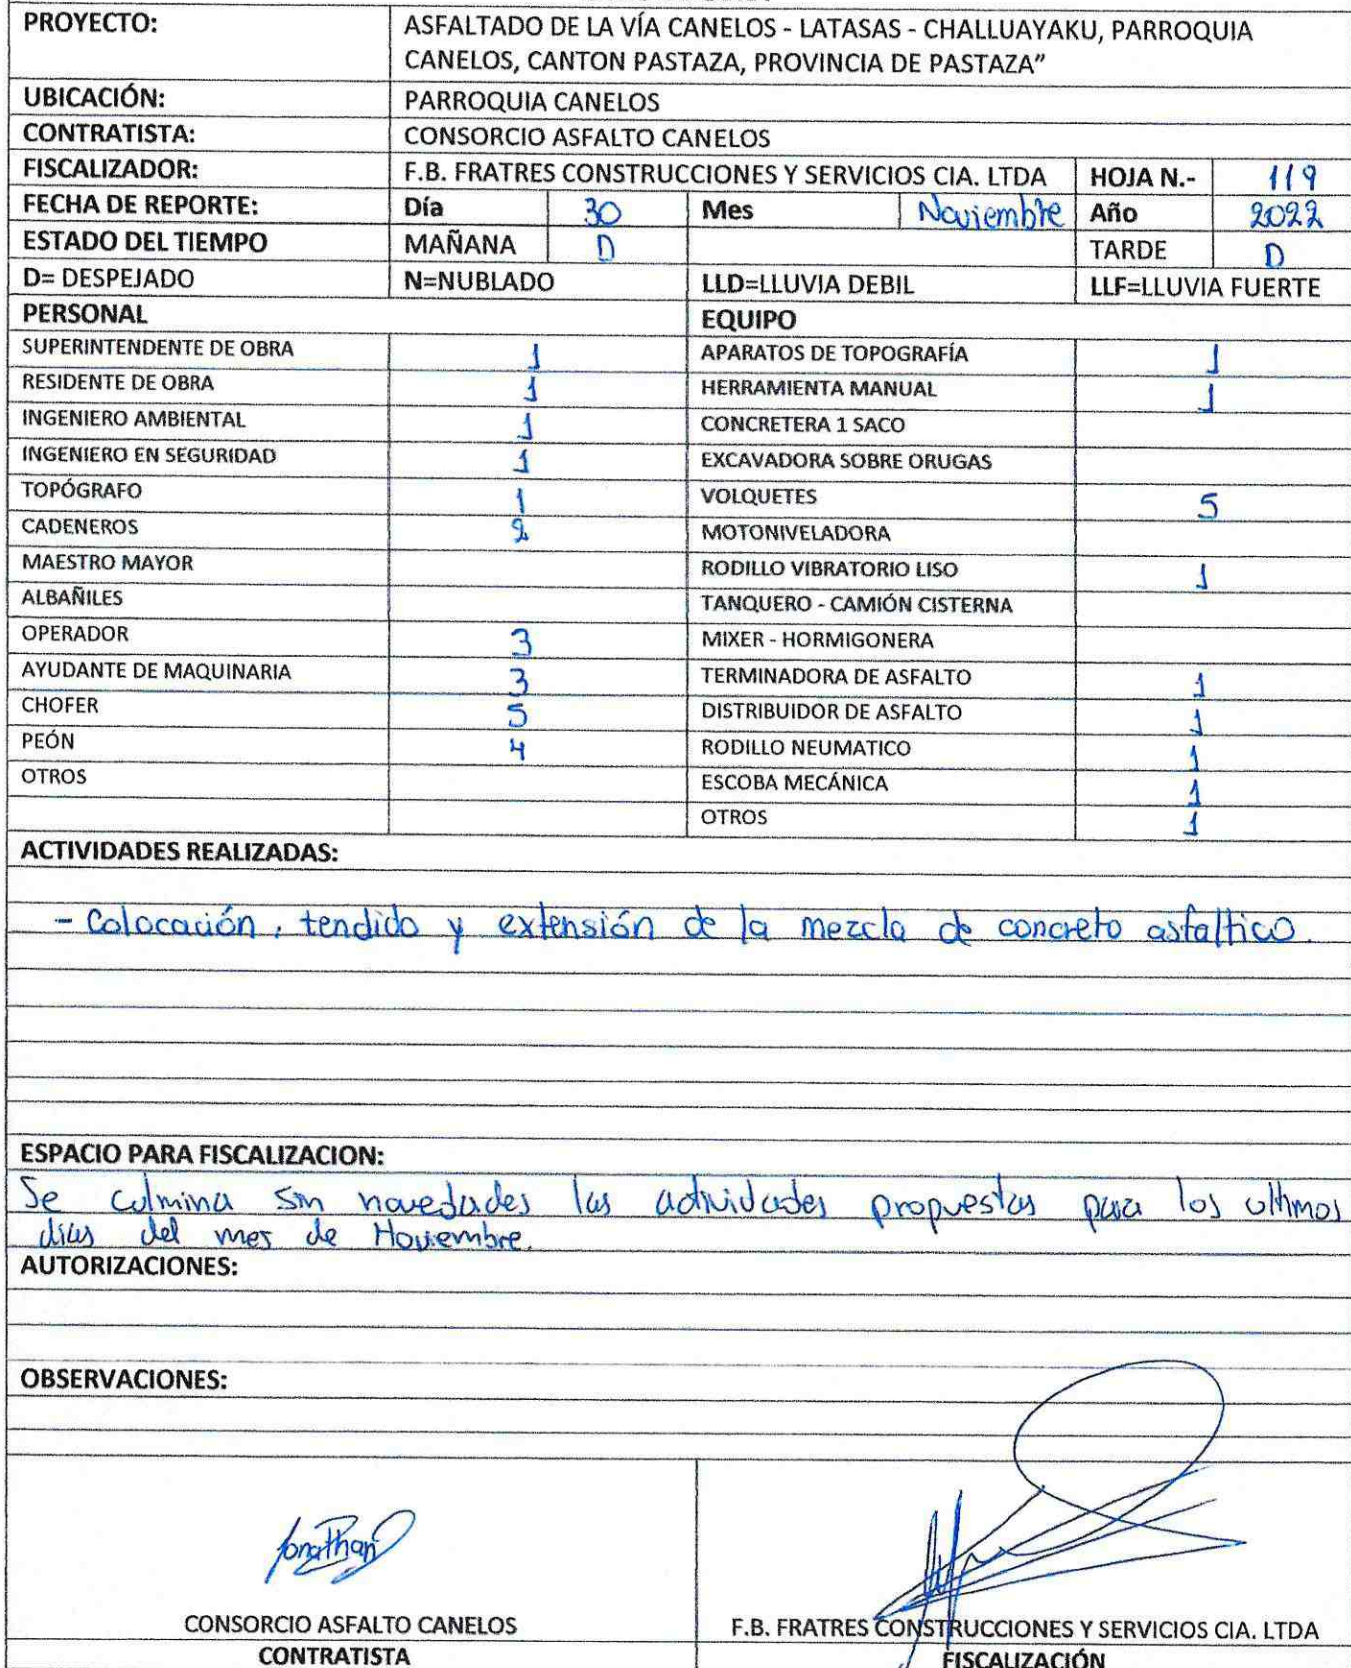 PROYECTO: ASFALTADO DE LA VÍA CANELOS - LATASAS - CHALLUAYAKU, PARROQUIA
CANELOS, CANTON PASTAZA, PROVINCIA DE PASTAZA”
UBICACIÓN: PARROQUIA CANELOS
CONTRATISTA: CONSORCIO ASFALTO CANELOS
FISCALIZADOR: F.B. FRATRES CONSTRUCCIONES Y SERVICIOS CIA. LTDA HOJA N.- 119
FECHA DE REPORTE: Día 30 Mes Noviembre Año 2022
ESTADO DEL TIEMPO MAÑANA D TARDE D
D= DESPEJADO N=NUBLADO LLD=LLUVIA DEBIL LLF=LLUVIA FUERTE
PERSONAL EQUIPO
SUPERINTENDENTE DE OBRA 1 APARATOS DE TOPOGRAFÍA 1
RESIDENTE DE OBRA 1 HERRAMIENTA MANUAL 1
INGENIERO AMBIENTAL 1 CONCRETERA 1 SACO
INGENIERO EN SEGURIDAD 1 EXCAVADORA SOBRE ORUGAS
TOPÓGRAFO 1 VOLQUETES 5
CADENEROS 2 MOTONIVELADORA
MAESTRO MAYOR RODILLO VIBRATORIO LISO 1
ALBAÑILES TANQUERO - CAMIÓN CISTERNA
OPERADOR 3 MIXER - HORMIGONERA
AYUDANTE DE MAQUINARIA 3 TERMINADORA DE ASFALTO 1
CHOFER 5 DISTRIBUIDOR DE ASFALTO 1
PEÓN 4 RODILLO NEUMATICO 1
OTROS ESCOBA MECÁNICA 1
OTROS 1
ACTIVIDADES REALIZADAS:
- Colocación, tendido y extensión de la mezcla de concreto asfaltico.
ESPACIO PARA FISCALIZACION:
Se culmina sin novedades las actividades propuestas para los ultimos
dias del mes de Noviembre.
AUTORIZACIONES:
OBSERVACIONES:
Jonathan
CONSORCIO ASFALTO CANELOS F.B. FRATRES CONSTRUCCIONES Y SERVICIOS CIA. LTDA
CONTRATISTA FISCALIZACIÓN